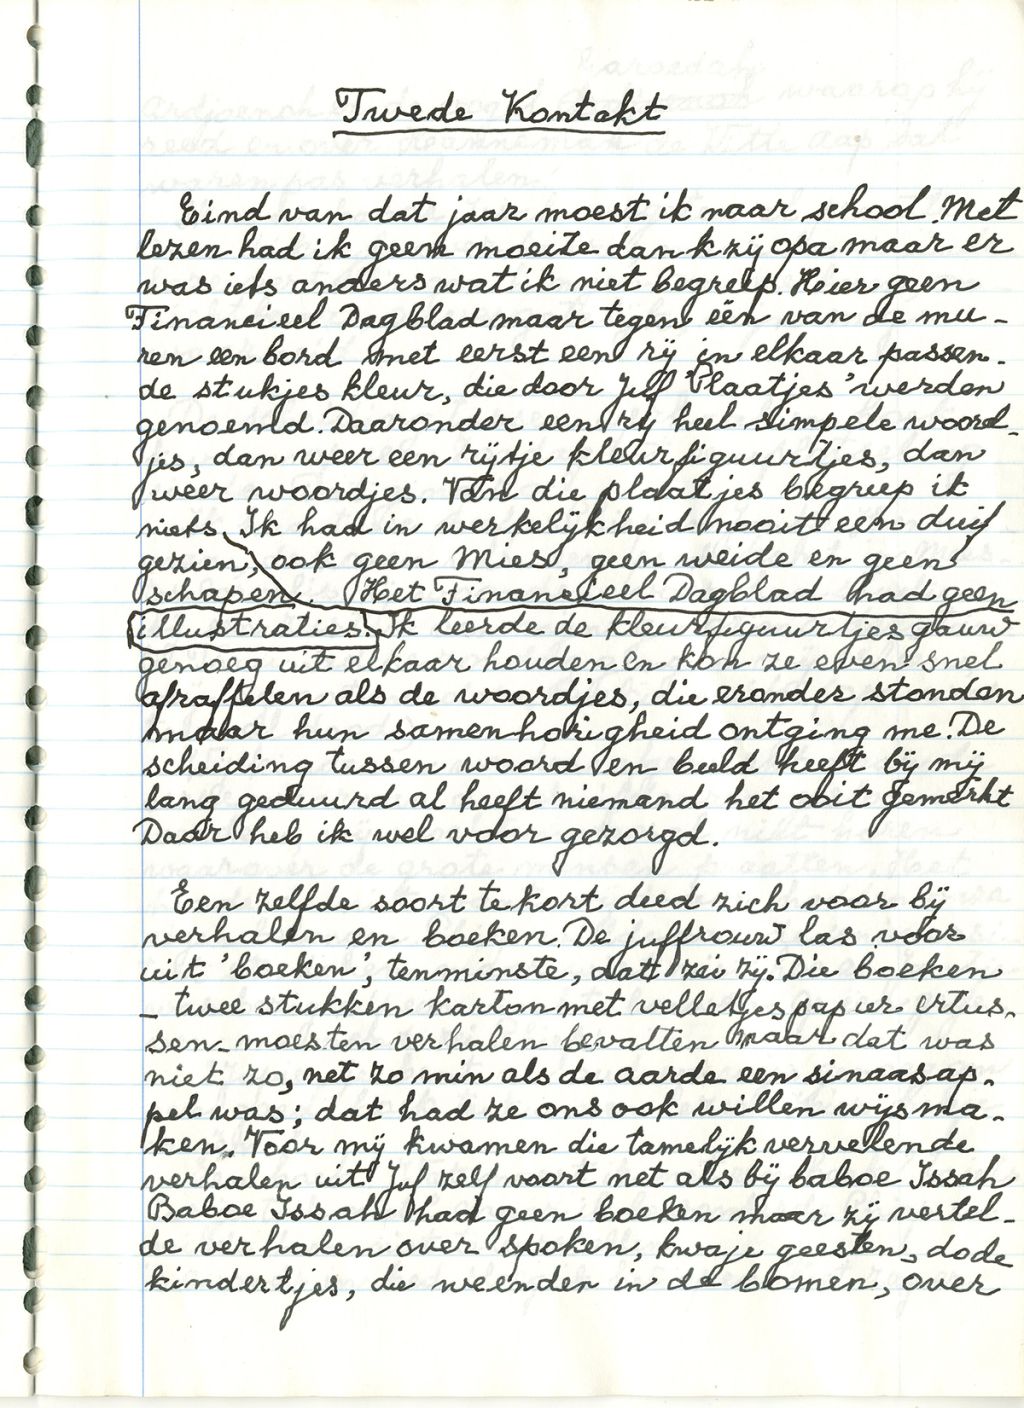 Twede Kontakt
Eind van dat jaar moest ik naar school. Met
lezen had ik geen moeite dankzij opa maar er
was iets anders wat ik niet begreep. Hier geen
Financieel Dagblad maar tegen één van de mu-
ren een bord met eerst een rij in elkaar passen-
de stukjes kleur, die door Juf 'Plaatjes' werden
genoemd. Daaronder een rij heel simpele woord-
jes, dan weer een rijtje kleurfiguurtjes, dan
weer woordjes. Van die plaatjes begreep ik
niets. Ik had in werkelijkheid nooit een duif
gezien, ook geen Mies, geen weide en geen
schapen. Het Financieel Dagblad had geen
illustraties. Ik leerde de kleurfiguurtjes gauw
genoeg uit elkaar houden en kon ze even snel
afraffelen als de woordjes, die eronder stonden
maar hun samenhorigheid ontging me. De
scheiding tussen woord en beeld heeft bij mij
lang geduurd al heeft niemand het ooit gemerkt
Daar heb ik wel voor gezorgd.
Een zelfde soort tekort deed zich voor bij
verhalen en boeken. De juffrouw las voor
uit 'boeken', tenminste, dat zei zij. Die boeken
- twee stukken karton met velletjes papier ertus-
sen - moesten verhalen bevatten maar dat was
niet zo, net zo min als de aarde een sinaasap-
pel was; dat had ze ons ook willen wijsma-
ken. Voor mij kwamen die tamelijk vervelende
verhalen uit Juf zelf voort net als bij baboe Issah
Baboe Issah had geen boeken maar zij vertel-
de verhalen over spoken, kwaje geesten, dode
kindertjes, die weenden in de bomen, over